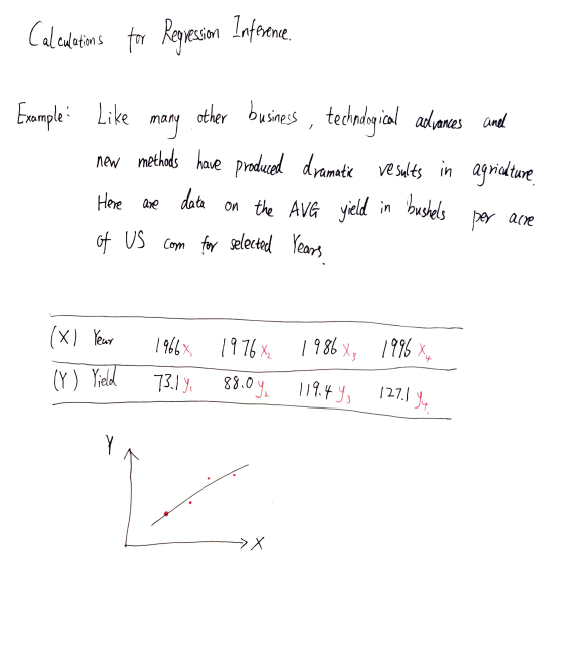 Calculations for Regression Inference.
Example: Like many other business, technological advances and
new methods have produced dramatic results in agriculture.
Here are data on the AVG yield in bushels per acre
of US corn for selected Years.
(X) Year 1966 x₁ 1976 x₂ 1986 x₃ 1996 x₄
(Y) Yield 73.1 y₁ 88.0 y₂ 119.4 y₃ 127.1 y₄
Y
X